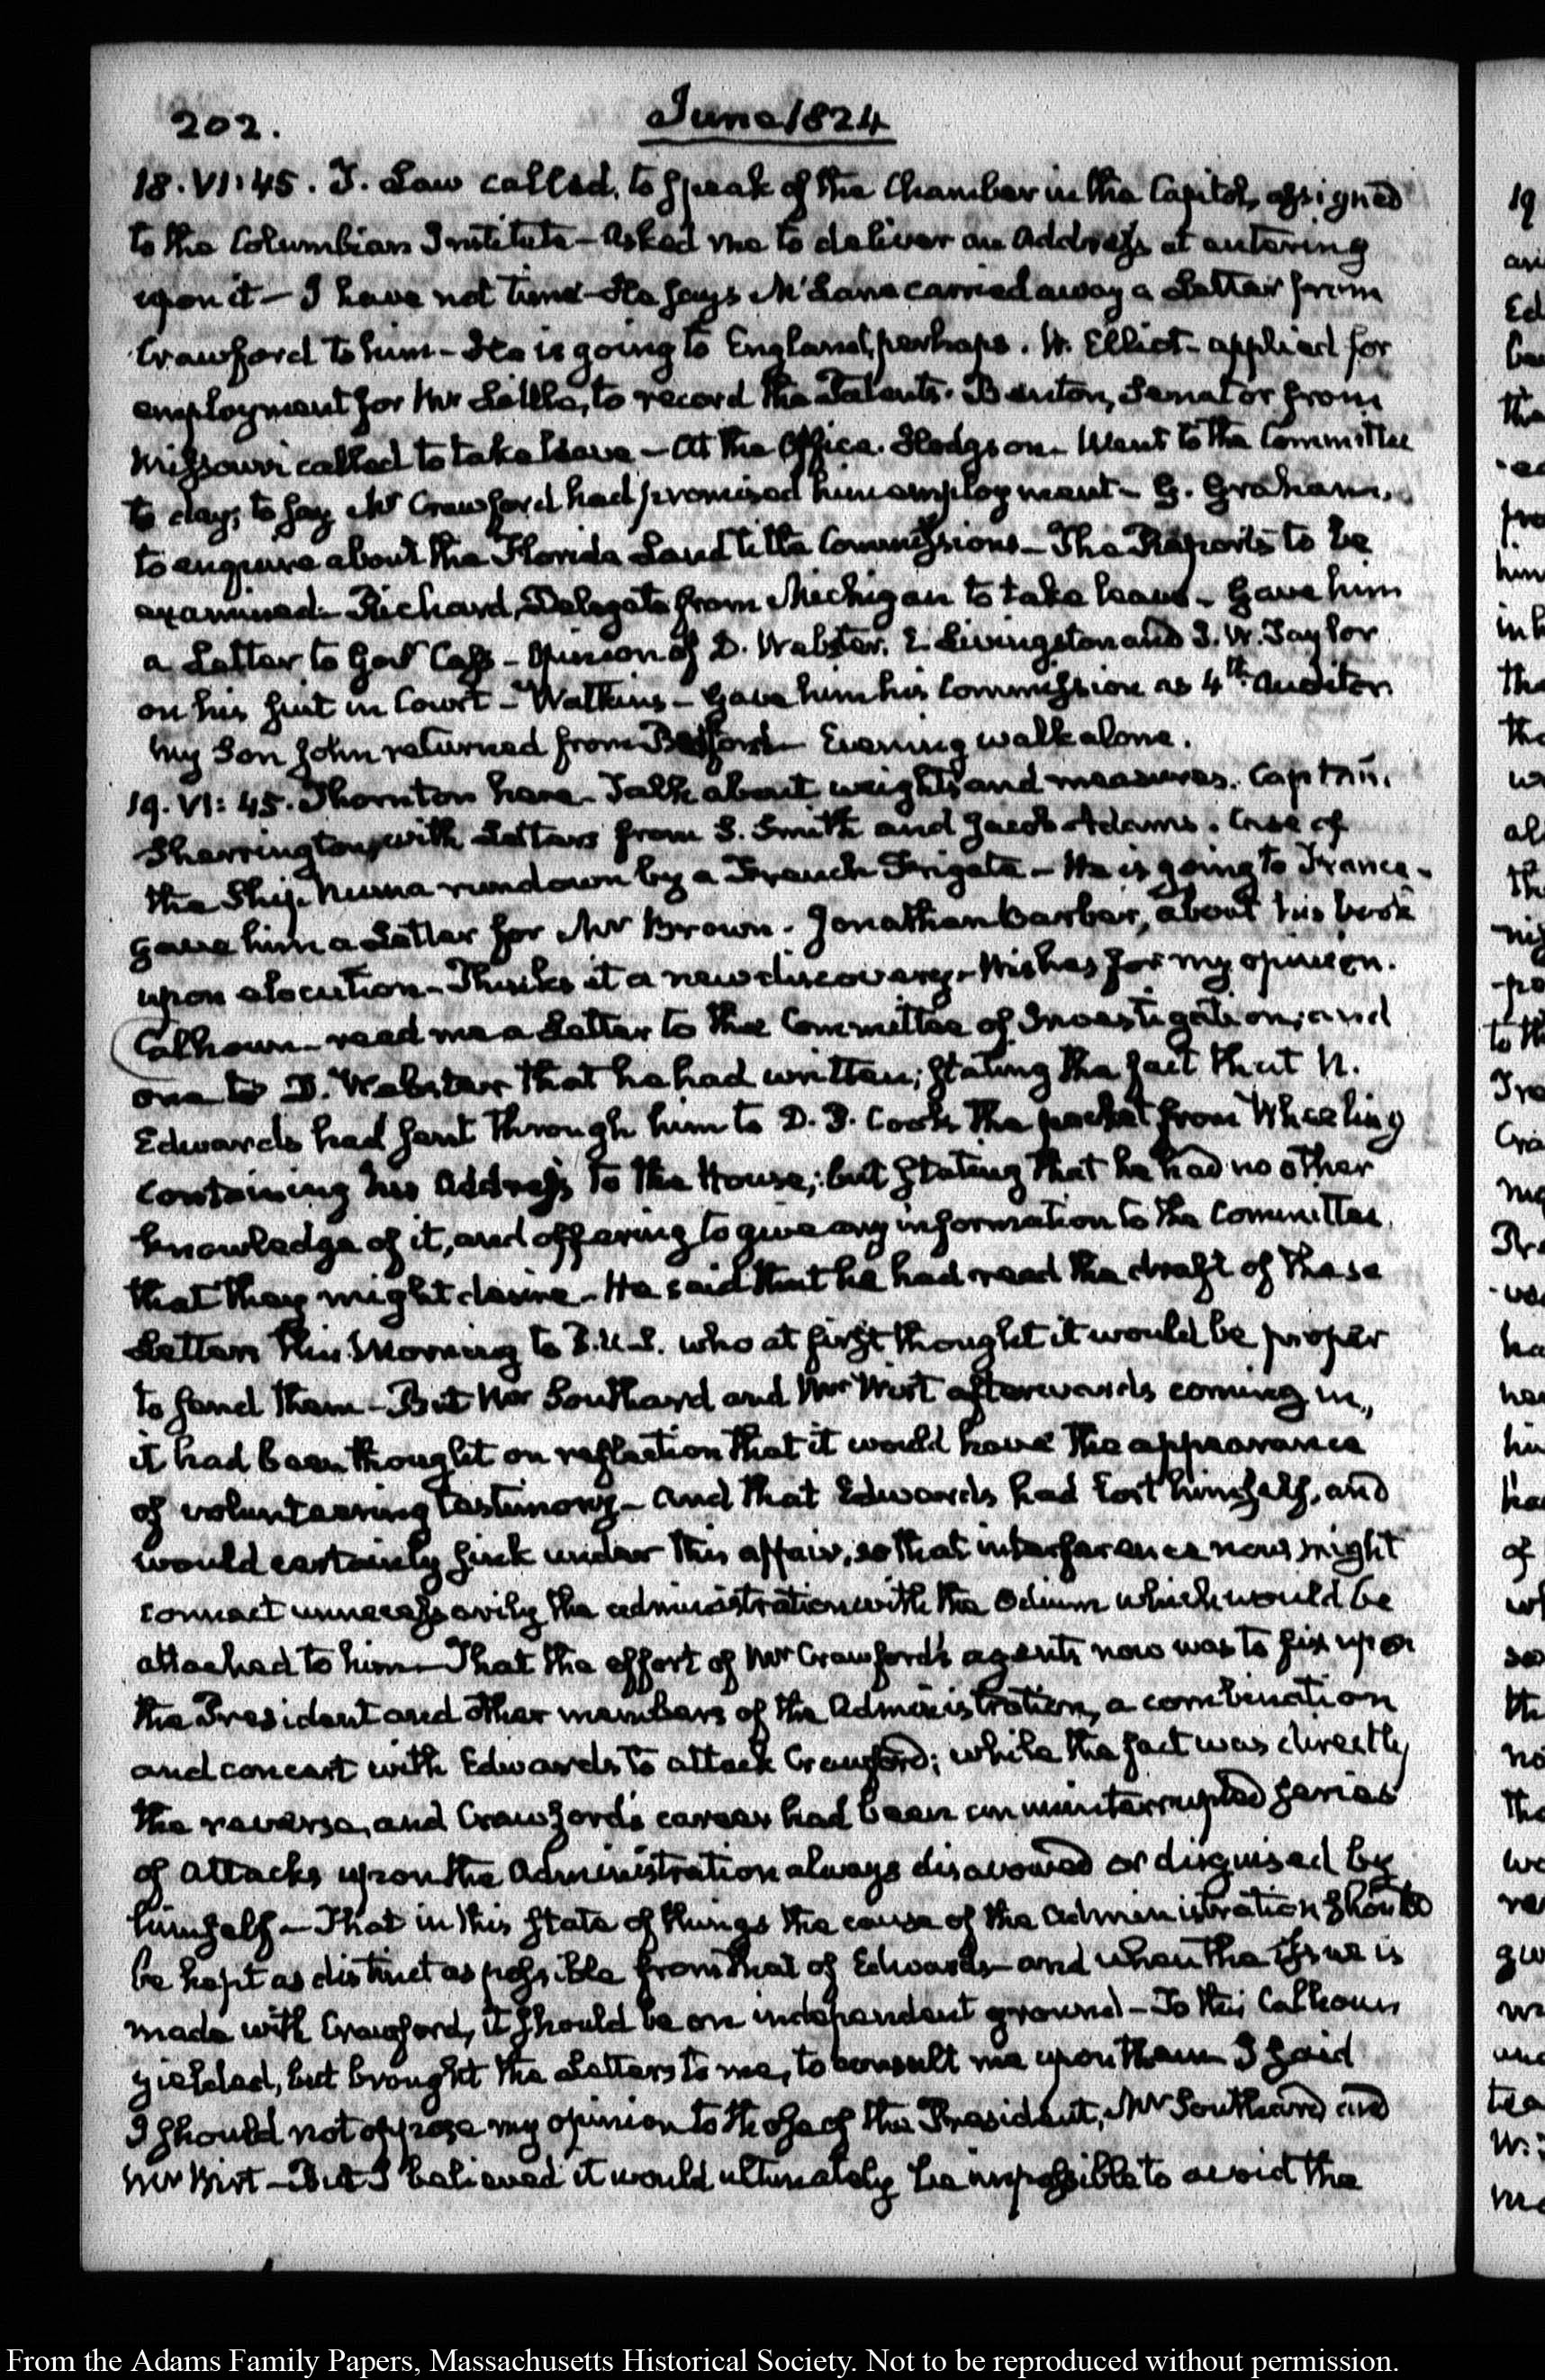 202.
June 1824
18. VI: 45. T. Law called, to speak of the Chamber in the Capitol, assigned
to the Columbian Institute – Asked me to deliver an Address at entering
upon it – I have not time – He says McLane carried away a Letter from
Crawford to him – He is going to England, perhaps. W. Elliot – applied for
employment for Mr Little, to record the Patents. Benton, Senator from
Missouri called to take leave – At the Office. Hodgson – Went to the Committee
to day, to say Mr Crawford had promised him employment – G. Graham,
to enquire about the Florida Land title Commissions – The Reports to be
examined – Richard, Delegate from Michigan to take leave – Gave him
a Letter to Govr Cass – Opinion of D. Webster, E. Livingston and J. W. Taylor
on his suit in Court – Watkins – Gave him his Commission as 4th Auditor
My Son John returned from Evening walk alone.
19. VI: 45. Thornton here – Talk about weights and measures. Captain
Sherrington, with Letters from S. Smith and Jacob Adams. Case of
the Ship Numa run down by a French Frigate – He is going to France –
gave him a Letter for Mr Brown. Jonathan Barber, about his book
upon elocution – Thinks it a new discovery – Wishes for my opinion.
Calhoun – read me a Letter to the Committee of Investigation; and
one to D. Webster that he had written; stating the fact that N.
Edwards had sent through him to D. P. Cook the packet from Wheeling
containing his Address to the House; but stating that he had no other
knowledge of it, and offering to give any information to the Committee
that they might desire – He said that he had read the draft of these
Letters this Morning to P.U.S. who at first thought it would be proper
to send them – But Mr Southard and Mr Wirt afterwards coming in,
it had been thought on reflection that it would have the appearance
of volunteering testimony – and that Edwards had lost himself, and
would certainly sink under this affair, so that interference now might
connect unnecessarily the administration with the odium which would be
attached to him – That the effort of Mr Crawford's agents now was to fix upon
the President and other members of the Administration, a combination
and concert with Edwards to attack Crawford; while the fact was directly
the reverse, and Crawford's career had been an uninterrupted series
of attacks upon the Administration always disavowed or disguised by
himself – That in this state of things the cause of the Administration should
be kept as distinct as possible from that of Edwards – and when the issue is
made with Crawford, it should be on independent ground – To this Calhoun
yielded, but brought the Letters to me, to consult me upon them – I said
I should not oppose my opinion to those of the President, Mr Southard and
Mr Wirt – But I believed it would ultimately be impossible to avoid the
From the Adams Family Papers, Massachusetts Historical Society. Not to be reproduced without permission.